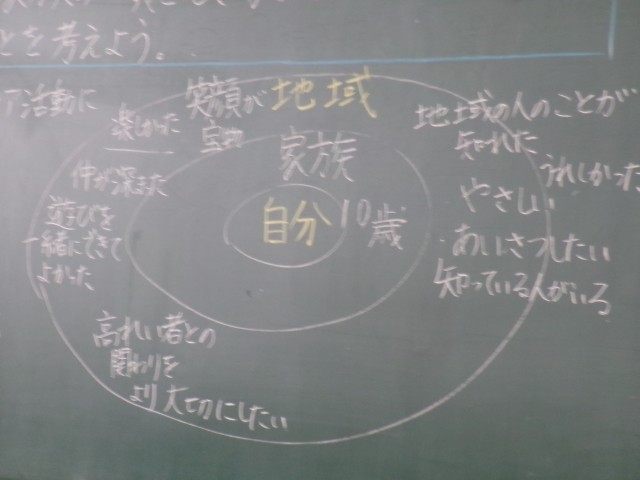 とを考えよう。
ア活動に
楽しかった
笑顔が
宝物
地域
家族
自分
10歳
仲が深まった
遊びを
一緒にできて
よかった
高れい者との
関わりを
より大切にしたい
地域の人のことが
知れた
うれしかった
やさしい
・あいさつしたい
知っている人がいる